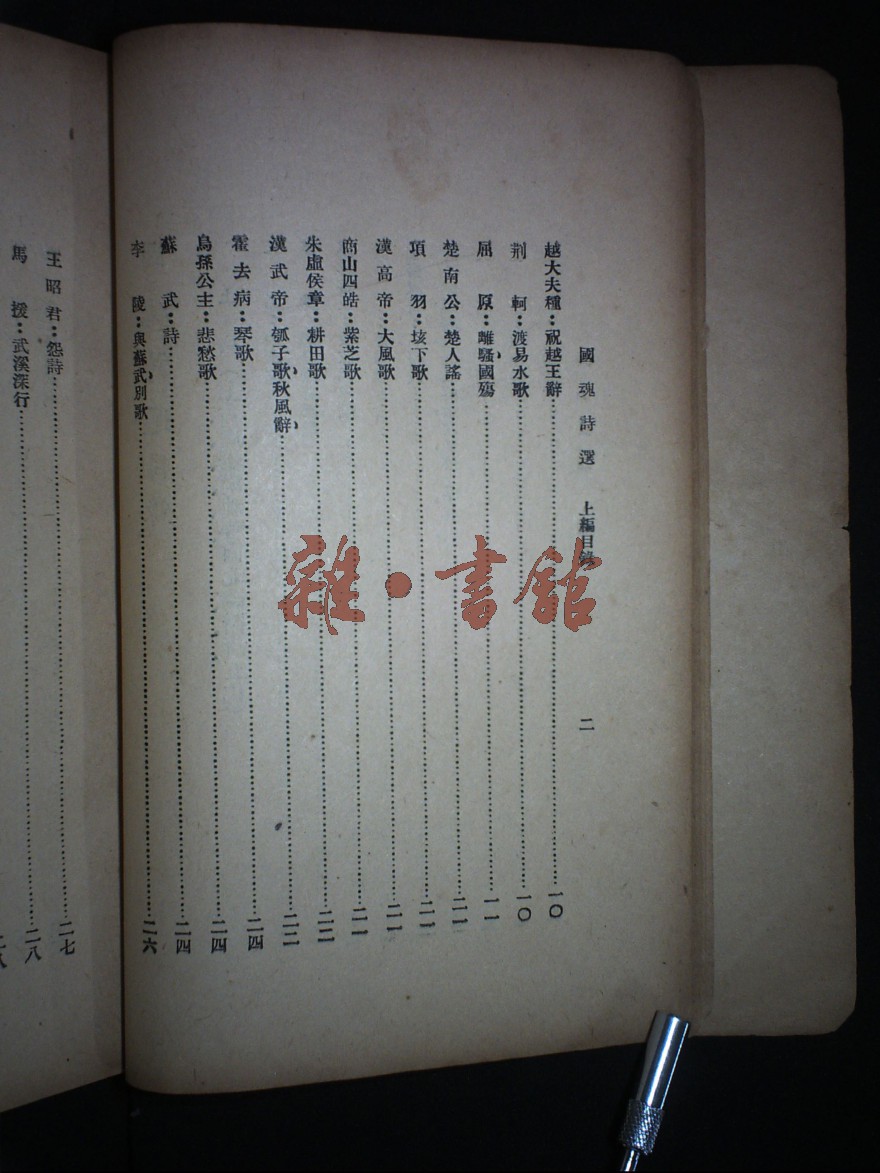 國魂詩選 上編目錄 二
越大夫種：祝越王辭……一〇
荆軻：渡易水歌……一〇
屈原：離騷、國殤……一一
楚南公：楚人謠……二一
項羽：垓下歌……二一
漢高帝：大風歌……二一
商山四皓：紫芝歌……二一
朱虛侯章：耕田歌……二二
漢武帝：瓠子歌、秋風辭、……二二
霍去病：琴歌……二四
烏孫公主：悲愁歌……二四
蘇武：詩……二四
李陵：與蘇武、別歌……二六
王昭君：怨詩……二七
馬援：武溪深行……二八
雜·書館